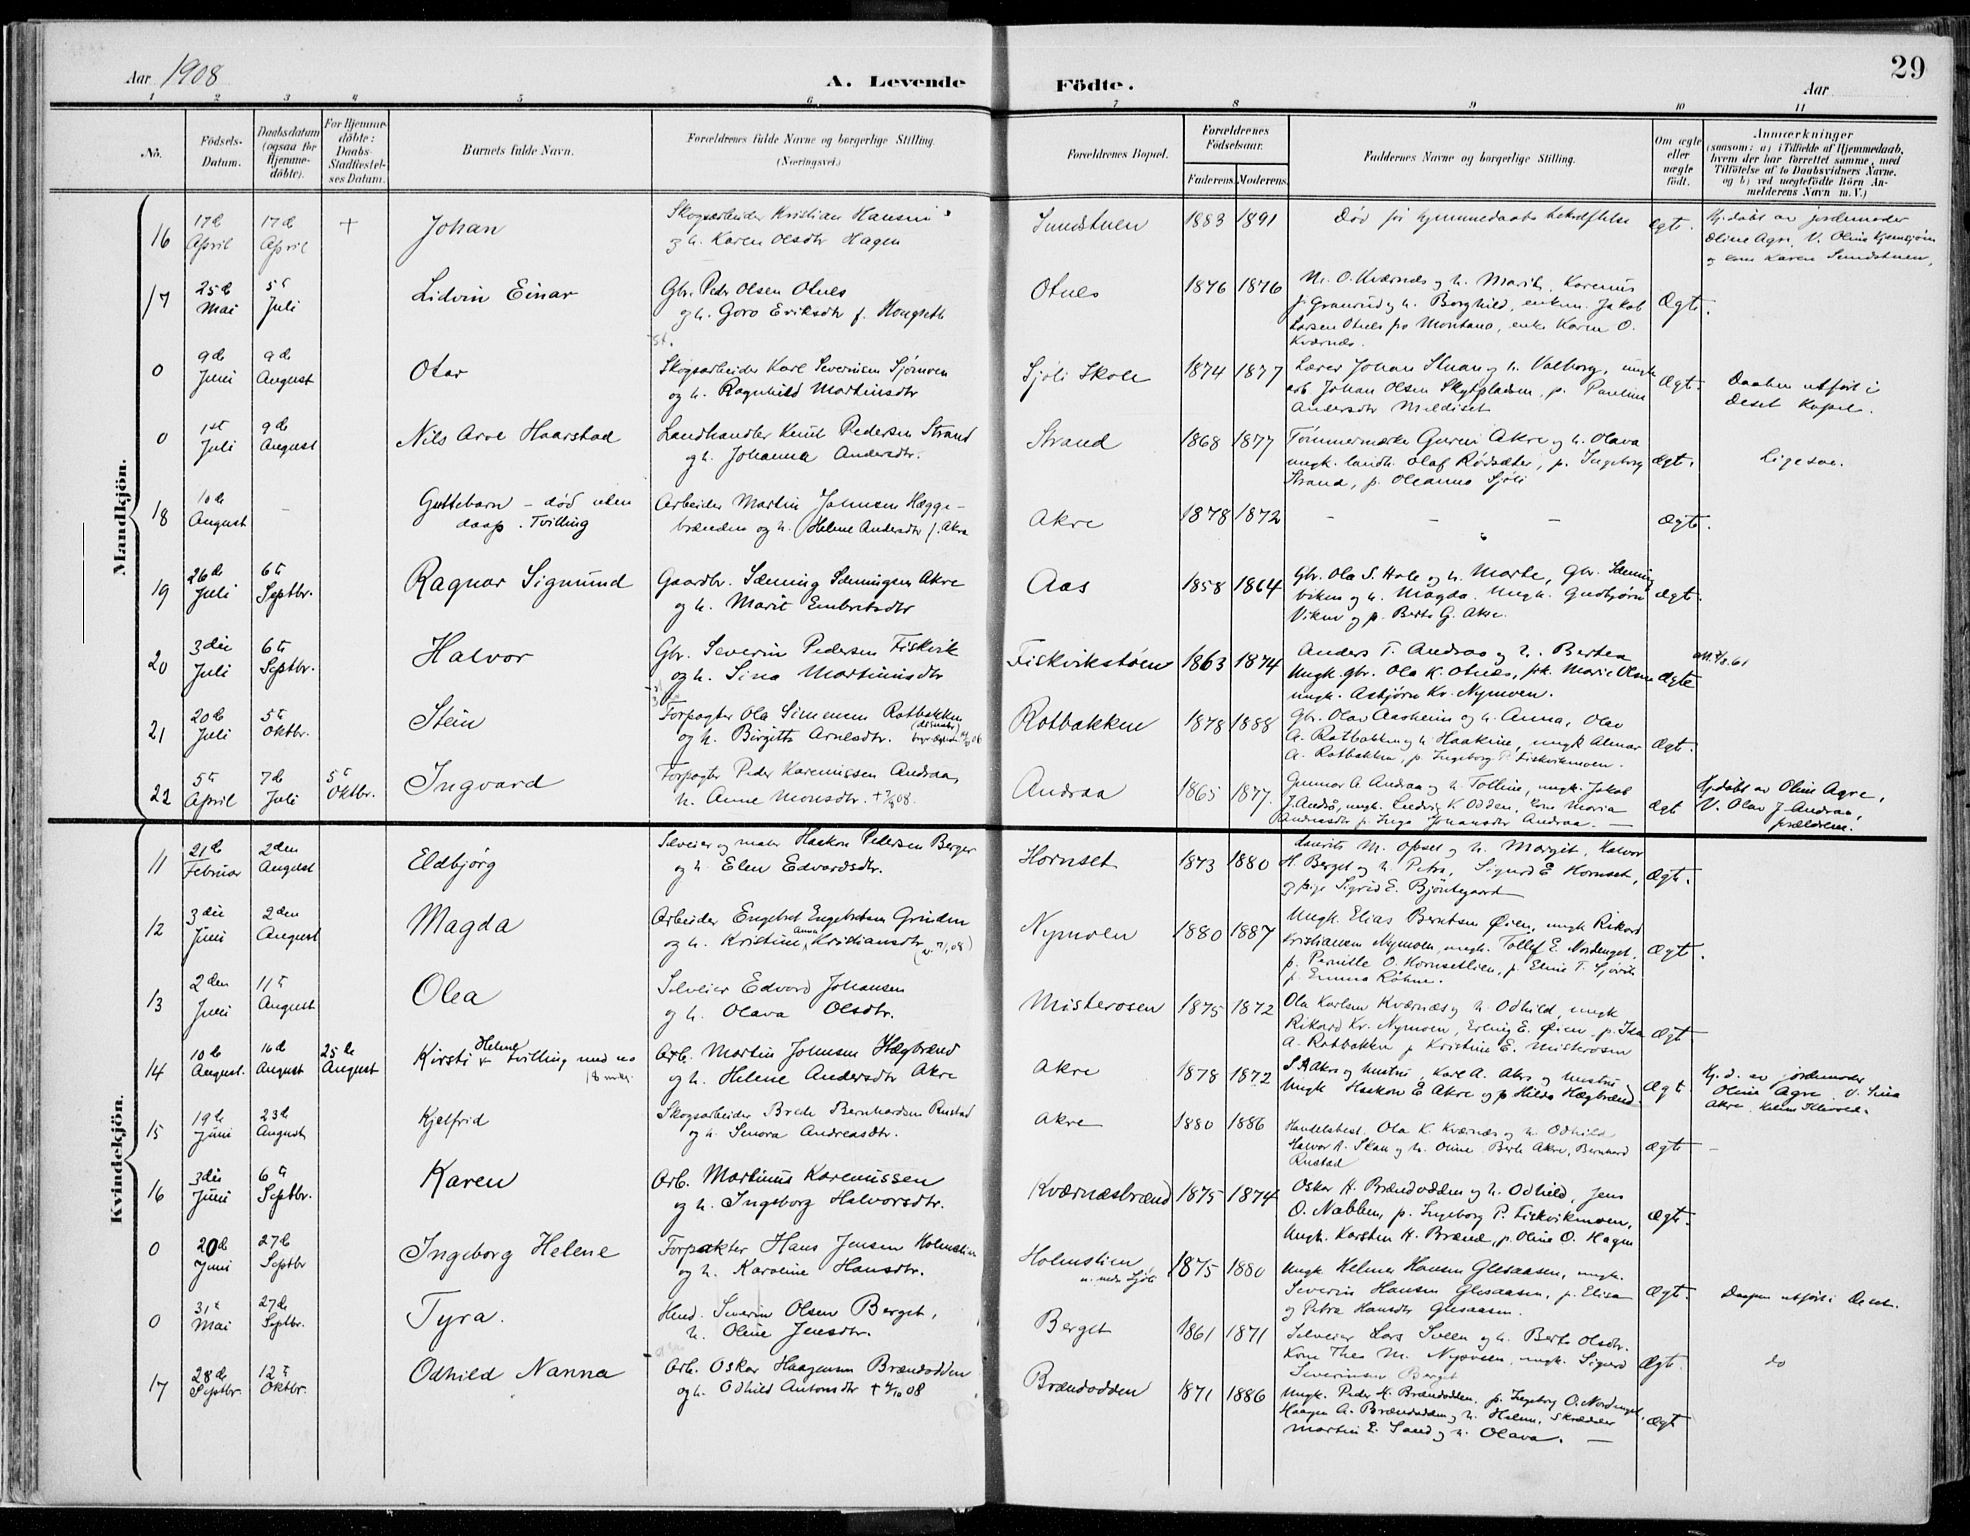 Aar 1908
A. Levende Födte.
Aar
29
1 2 3 4 5 6 7 8 9 10 11
No.
Födsels-Datum.
Daabsdatum (ogsaa for Hjemmedöbte).
For Hjemmedöbte: Daabs-Stadfæstelses Datum.
Barnets fulde Navn.
Forældrenes fulde Navne og borgerlige Stilling. (Næringsvei.)
Forældrenes Bopæl.
Forældrenes Födselsaar.
Faderens. Moderens.
Faddernes Navne og borgerlige Stilling.
Om ægte eller uægte födt.
Anmærkninger
(saasom: a) i Tilfælde af Hjemmedaab,
hvem der har forrettet samme, med
Tilföielse af to Daabsvidners Navne.
og b) ved uægtefödte Börn Anmelderens Navn m. V.)
Mandkjön.
16 17de April 17de April + Johan Skogsarbeider Kristian Hansen og h. Karen Olsdtr Hagen Sundstuen 1883 1891 Død før hjemmedaabs bekræftelse ægte. Hj.døbt av jordemoder Oline Agre, V. Oline og kone Karen Sundstuen.
17 25de Mai 5te Juli Lidvin Einar Gbr. Peder Olsen Otnes og h. Goro Eriksdtr f. Hongseth Otnes 1876 1876 M. O. Kværnes og h. Marit, Karenus J. Granrud og h. Borghild, enkem. Jakob Larsen Otnes fra Montana, enke Karen O. Kværnes. Ægte.
0 9de Juni 9de August Otar Skogsarbeider Karl Severinsen Sjømoen og h. Ragnhild Martinsdtr Sjöli Skole 1874 1877 Lærer Johan Stuan og h. Valborg, ungk arb Johan Olsen Skytpladsen, p. Pauline Andersdtr Meldiset Ægte. Daaben utført i Deset Kapel.
0 1ste Juli 9de August Nils Arve Haarstad Landhandler Knut Pedersen Strand og h. Johanna Andersdtr. Strand 1868 1877 Tømmermerker Guren Akre og h. Olava ungk. landh. Olaf Rødsæter, p. Ingeborg Strand, p. Oleanna Sjöli Ægte. Ligesaa.
18 10de August – Guttebarn – død uten daap. Tvilling Arbeider Martin Johnsen Hæggebrænden og h. Helene Andersdtr f. Akre Akre 1878 1872 – – – Ægte.
19 26de Juli 6te Septbr. Ragnar Sigmund Gaardbr. Sæming Sæmingsen Akre og h. Marit Embretsdtr Aas 1858 1864 Gbr. Ola S. Hole og h. Marte, Gbr. Sæming Viken og h. Magda. Ungk. Gudbjørn Viken og p. Berte G. Akre. Ægte.
20 3die Juli 6te Septbr. Halvor Gbr. Severin Pedersen Fiskvik og h. Sina Martinusdtr Fiskvikstøen 1863 1874 Anders T. Andraa og h. Bertea Ungk. gbr. Ola K. Otnes, frk. Marie Olsen ungk. Asbjørn Kr. Nymoen. Ægte
21 20de Juli 5te Oktbr. Stein Forpagter Ola Simensen Rotbakken og h. Birgitte Arnesdtr. Rotbakken 1878 1888 Gbr. Olav Aasheim og h. Anna, Olav A. Rotbakken og h. Haakine, ungk Almar A. Rotbakken, p. Ingeborg P. Fiskvikmoen. Ægte.
22 5te April 7de Juli 5te Oktbr. Ingvard Forpagter Peder Karenussen Andraa, h. Anne Monsdtr. Andraa 1865 1877. Gunnar A Andraa og h. Tolline, ungk. Jakob J. Andrå, ungk. Ludvig K Odden, Kone Maria Andreasdtr p. Inga Johansdtr Andraa. Ægte Hj.døbt av Oline Agre, V. Olav J. Andraa, forældrene.
Kvindekjön.
11 21de Februar 2den August Eldbjörg Sæveier og maler Haakon Pedersen Berger og h. Elen Edvardsdtr. Hornset 1873 1880 Laurits M. Opset og h. Margit, Halvor H. Berget og h. Petra, Sigurd E. Hornset, og pige Sigrid E. Bjöntegaard Ægte.
12 3die Juni 2den August Magda Arbeider Engebret Engebretsen Grinden og h. Kristine Anna Kristiansdtr Nymoen 1880 1887 Ungk. Elias Berntsen Øien, ungk Rikard Kristiansen Nymoen, ungk. Tollef E. Nordenget, p. Pernille O. Hornsetlien, p. Eline T. Sjøvik p. Emma Röhne. Ægte.
13 2den Juni 11te August Olea Selveier Edvard Johansen og h. Olava Olsdtr. Misterosen 1875 1872 Ola Karlsen Kværnæs og h. Odhild, ungk Rikard Kr. Nymoen, Erling E. Øien, p. Ida A. Rotbakken p Kristine E. Misterosen Ægte
14 10de August. 16de August 25de August Kirsti Helene Tvilling med no 18 Arb. Martin Johnsen Hægbrænd og h. Helene Andersdtr Akre Akre 1878 1872 S Akre og hustru, Karl A. Akre og hustru, Ungk Haakon E Akre og p Hilda Hægbrænd. Ægte Hj. d. av jordemoder Oline Agre V. Sina Akre
15 19de Juni 23de August Kjelfrid Skogsarbeider Brede Bernhardsen Rustad og h. Senora Andreasdtr. Akre 1880 1886 Handelsbest. Ola K. Kværnæs og h. Odhild Halvor A. Skau og h. Oline Berte Akre, Bernhard Rustad Ægte –
16 3die Juni 6te Septbr. Karen Arb. Martinus Karenussen og h. Ingeborg Halvorsdtr. Kværnæsbrænd 1875 1874 Oskar H. Brændodden og h. Odhild, Jens O. Nabben, p. Ingeborg P. Fiskvikmoen, Ungk. Karsten H. Brænd, p. Oline O. Hagen Ægte.
0 20de Juni 27de Septbr Ingeborg Helene Forpakter Hans Jensen Holmstien og h. Karoline Hansdtr. Holmstien u. nedre Sjöli 1875 1880 Ungk Helmer Hansen Glesaasen, ungk. Severin Hansen Glesaasen, p. Elisa og Petra Hansdtr Glesaasen. Ægte. Daapen utført i Deset.
0 31te Mai 27de Septbr. Tyra. Husd. Severin Olsen Berget, h. Oline Jensdtr. Berget 1861 1871 Selveier Lars Sveen og h. Berte Olsdtr. Kone Thea M. Nysveen, ungk. Sigurd Severinsen Berget Ægte. do
17 28de Septbr. 12te Oktbr. Odhild Nanna Arb. Oskar Haagensen Brændodden og h. Odhild Antonsdtr Brændodden 1871 1886 Ungk. Peder H. Brændodden, p. Ingeborg O. Nordenget, Haagen A. Brændodden og h. Haline, Skrædder Martin E. Sand og h. Olava. – Ægte